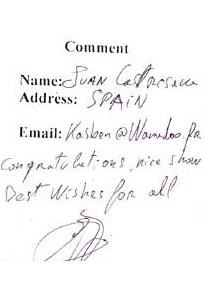 Comment
Name: JUAN
Address: SPAIN
Email: Kasben@Wanadoo.fr
Congratulations, nice show
Best Wishes for all